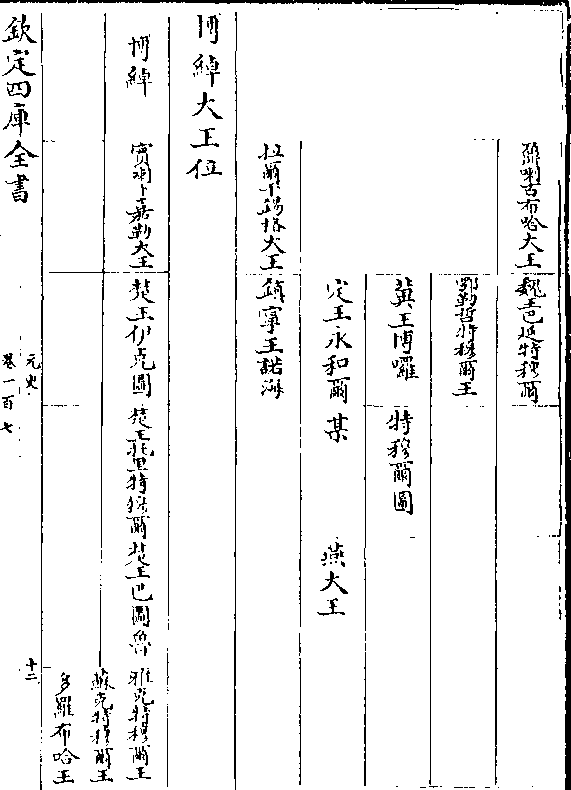 爾喇古布哈大王 魏王巴延特穆爾
鄂勒哲特穆爾王
冀王博囉 特穆爾圖
定王永和爾某 燕大王
拉爾下錫格大王 鎮寧王諾海
博綽大王位
博綽 寶喇卜嘉勒大王 楚王伊克圖 楚王托里特穆爾 楚王巴圖魯 雅克特穆爾王
蘇克特穆爾王
多羅布哈王
欽定四庫全書 元史 卷一百七 十二